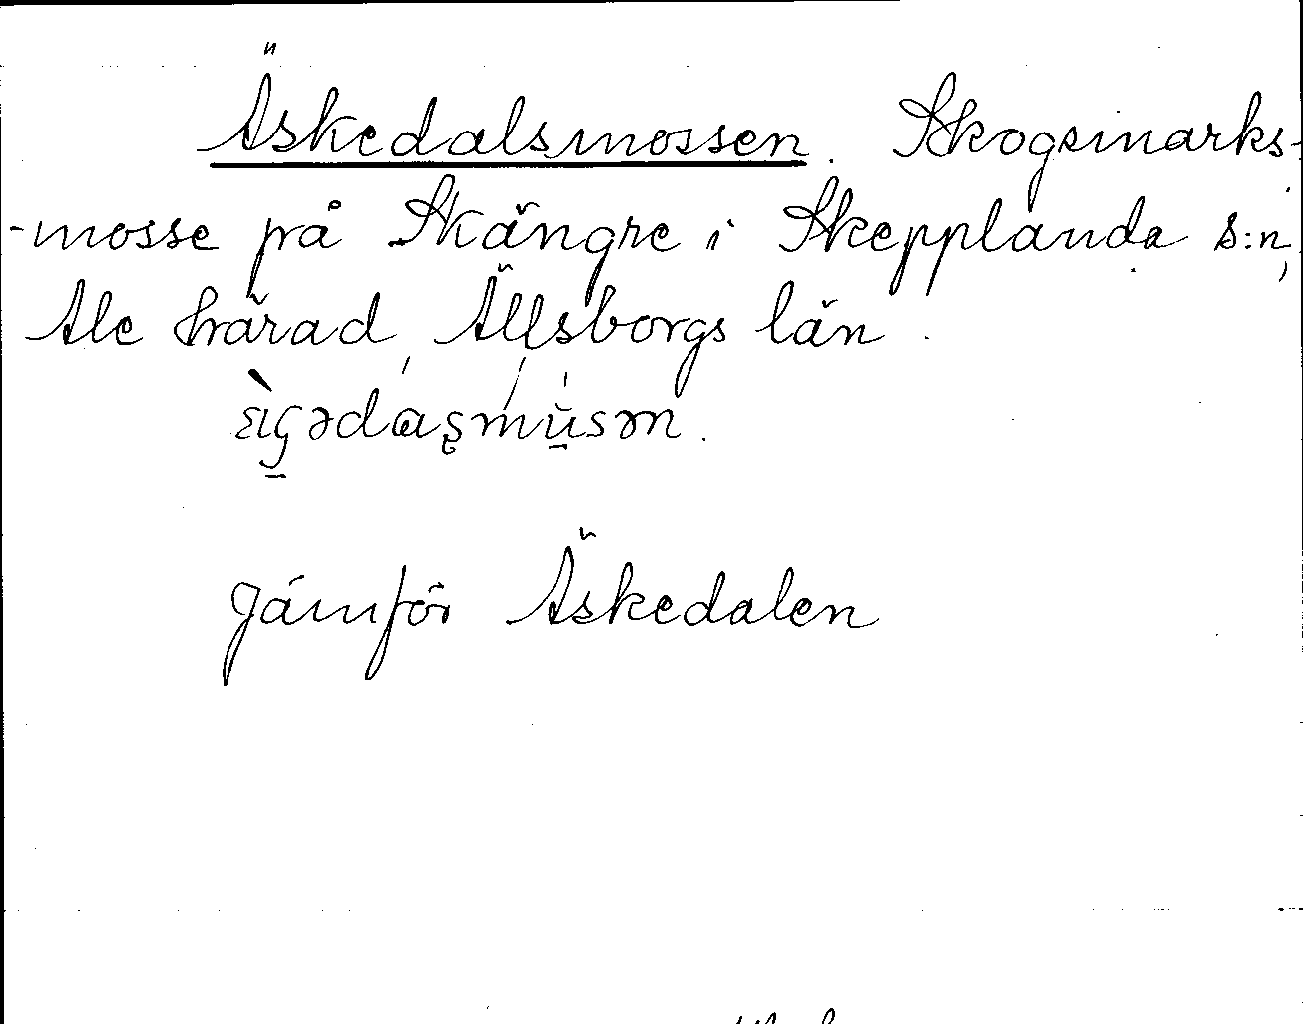 Äskedalsmossen. Skogsmarks-
-mosse på Skängre i Skepplanda s:n,
Ale härad, Älfsborgs län.
Jämför Äskedalen